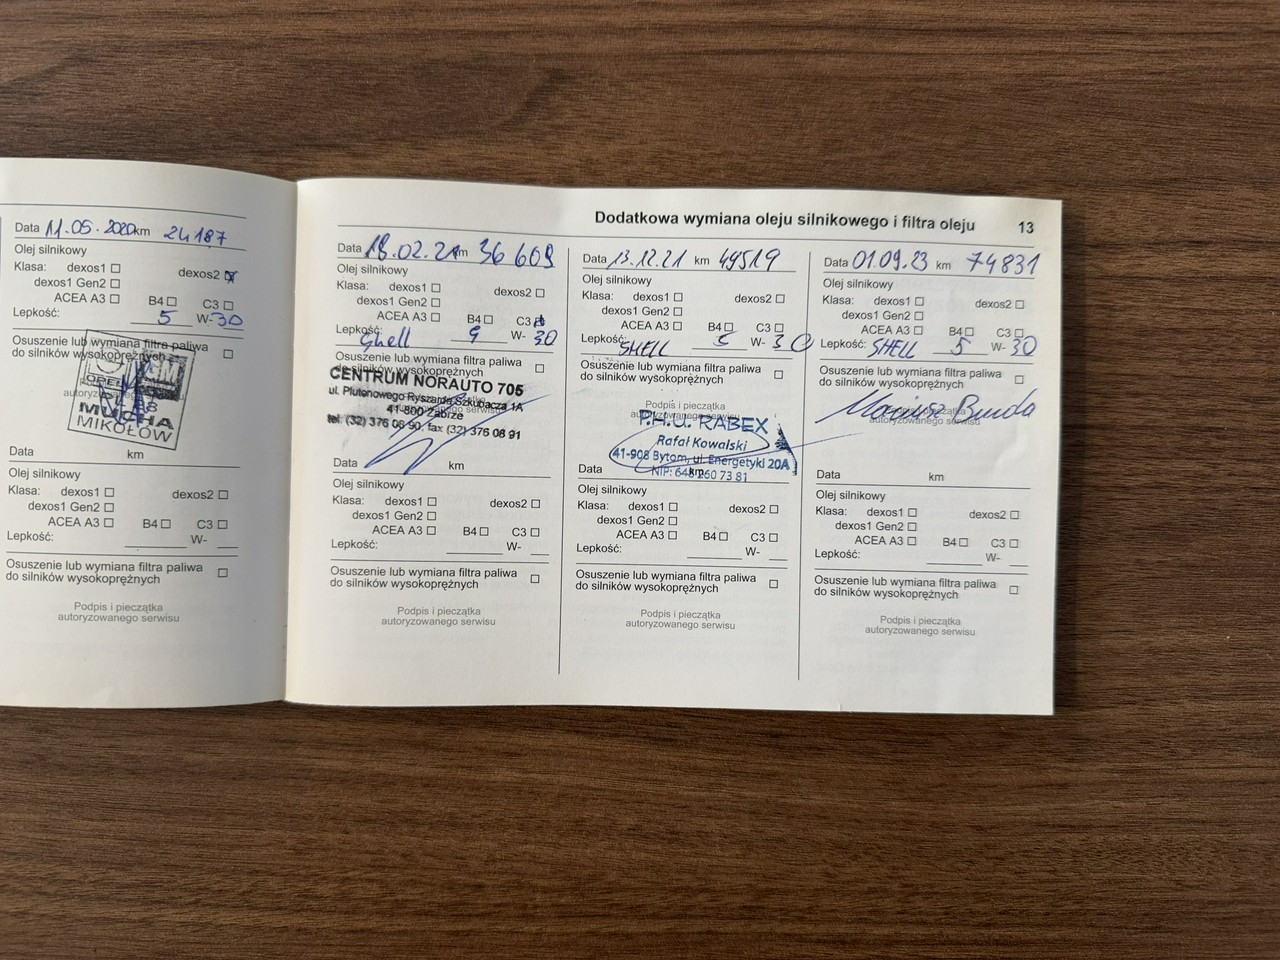 Dodatkowa wymiana oleju silnikowego i filtra oleju 13
Data 11.05.2020 km 24187
Olej silnikowy
Klasa: dexos1 dexos2
dexos1 Gen2
ACEA A3 B4 C3
Lepkość: 5 W-30
Osuszenie lub wymiana filtra paliwa
do silników wysokoprężnych
OPEL
MUCHA
MIKOŁÓW
Data km
Olej silnikowy
Klasa: dexos1 dexos2
dexos1 Gen2
ACEA A3 B4 C3
Lepkość: W-
Osuszenie lub wymiana filtra paliwa
do silników wysokoprężnych
Podpis i pieczątka
autoryzowanego serwisu
Data 18.02.21 km 36 609
Olej silnikowy
Klasa: dexos1 dexos2
dexos1 Gen2
ACEA A3 B4 C3
Lepkość: Shell W- 30
Osuszenie lub wymiana filtra paliwa
do silników wysokoprężnych
CENTRUM NORAUTO 705
ul. Plutonowego Ryszarda Szkubacza 1A
41-800 Zabrze
tel. (32) 376 06 90, fax (32) 376 06 91
Data km
Olej silnikowy
Klasa: dexos1 dexos2
dexos1 Gen2
ACEA A3 B4 C3
Lepkość: W-
Osuszenie lub wymiana filtra paliwa
do silników wysokoprężnych
Podpis i pieczątka
autoryzowanego serwisu
Data 13.12.21 km 49519
Olej silnikowy
Klasa: dexos1 dexos2
dexos1 Gen2
ACEA A3 B4 C3
Lepkość: SHELL 5 W- 30
Osuszenie lub wymiana filtra paliwa
do silników wysokoprężnych
Podpis i pieczątka
autoryzowanego serwisu
P.H.U. RABEX
Rafał Kowalski
41-908 Bytom, ul. Energetyki 20A
NIP: 648 260 73 81
Data km
Olej silnikowy
Klasa: dexos1 dexos2
dexos1 Gen2
ACEA A3 B4 C3
Lepkość: W-
Osuszenie lub wymiana filtra paliwa
do silników wysokoprężnych
Podpis i pieczątka
autoryzowanego serwisu
Data 01.09.23 km 74831
Olej silnikowy
Klasa: dexos1 dexos2
dexos1 Gen2
ACEA A3 B4 C3
Lepkość: SHELL 5 W- 30
Osuszenie lub wymiana filtra paliwa
do silników wysokoprężnych
Mariusz Bunda
autoryzowanego serwisu
Data km
Olej silnikowy
Klasa: dexos1 dexos2
dexos1 Gen2
ACEA A3 B4 C3
Lepkość: W-
Osuszenie lub wymiana filtra paliwa
do silników wysokoprężnych
Podpis i pieczątka
autoryzowanego serwisu